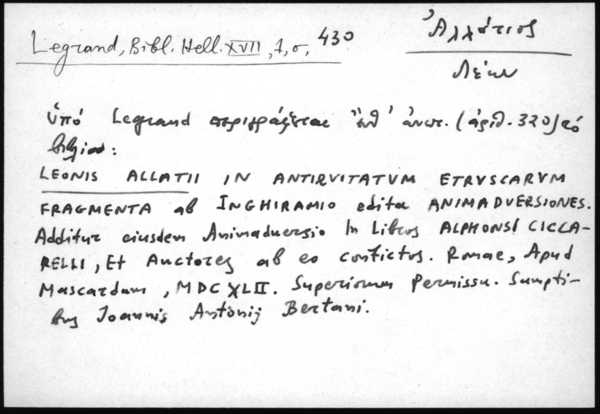 Legrand, Bibl. Hell. XVII, 1, σ. 430
Ἀλλάτιος
Λέων
ὑπό Legrand περιγράφεται ἔνθ' ἀνωτ. (ἀριθ. 330) τό
βιβλίον:
LEONIS ALLATII IN ANTIQVITATVM ETRVSCARVM
FRAGMENTA ab INGHIRAMIO edita ANIMADVERSIONES.
Additur eiusdem Animaduersio In Libros ALPHONSI CICCA-
RELLI, Et Auctores ab eo confictos. Romae, Apud
Mascardum, MDCXLII. Superiorum Permissu. Sumpti-
bus Joannis Antonij Bertani.